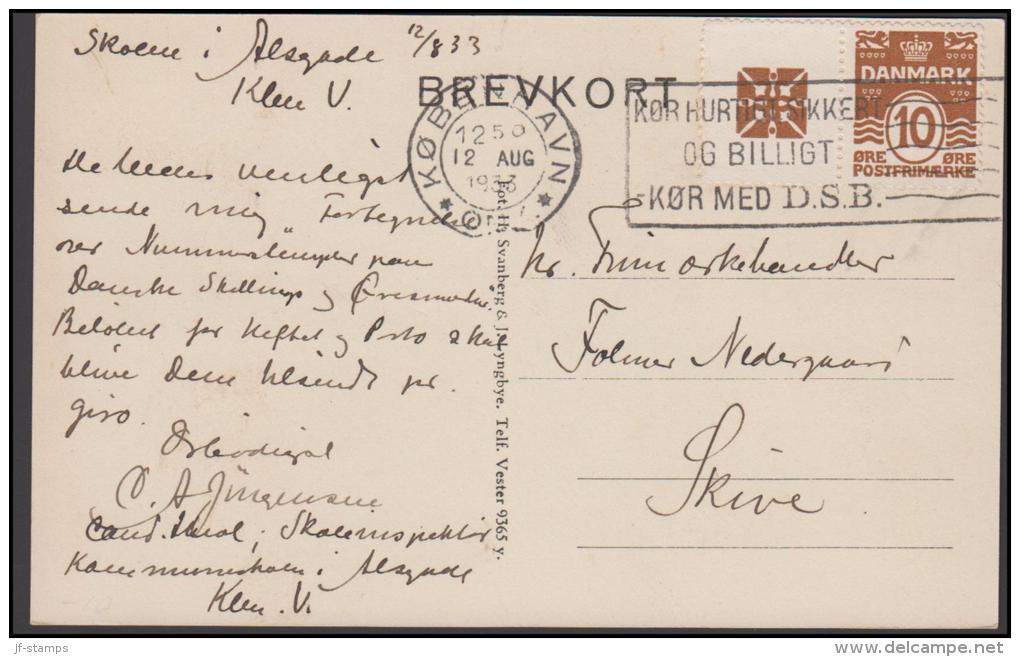 Skolen i Alsgade 12/8 33
Kbn V.
BREVKORT
KØBENHAVN
12 50
12 AUG
1933
OMK.
KØR HURTIGT SIKKERT
OG BILLIGT
-KØR MED D.S.B.-
DANMARK
10
ØRE ØRE
POSTFRIMÆRKE
De bedes venligst
sende mig Fortegnelse
over Nummerstempler paa
Danske Skillings og Øresmærker.
Beløbet for Heftet og Porto skal
blive Dem tilsendt pr.
giro.
Ærbødigst
C. A. Jörgensen
cand. theol, Skoleinspektör
Kommuneskolen i Alsgade
Kbn. V.
Fot. H. Svanberg & J. Lyngbye. Telf. Vester 9365 y.
Hr. Frimærkehandler
Folmer Nedergaard
Skive
jf-stamps
www.delcampe.net